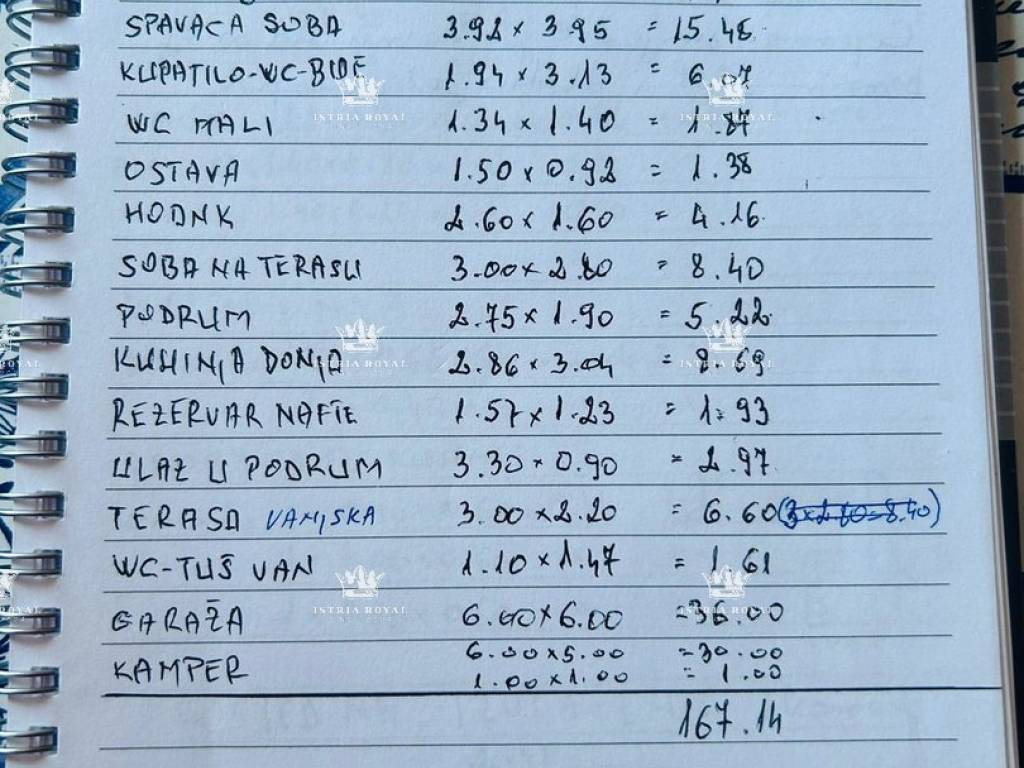 SPAVAĆA SOBA 3.92 x 3.95 = 15.48
KUPATILO-WC-BIDE 1.94 x 3.13 = 6.07
WC MALI 1.34 x 1.40 = 1.87
OSTAVA 1.50 x 0.92 = 1.38
HODNK 2.60 x 1.60 = 4.16
SOBA NA TERASU 3.00 x 2.80 = 8.40
PODRUM 2.75 x 1.90 = 5.22
KUHINJA DONJA 2.86 x 3.04 = 8.69
REZERVAR NAFTE 1.57 x 1.23 = 1.93
ULAZ U PODRUM 3.30 x 0.90 = 2.97
TERASA VANJSKA 3.00 x 2.20 = 6.60 (3x2.80=8.40)
WC-TUŠ VAN 1.10 x 1.47 = 1.61
GARAŽA 6.00 x 6.00 = 36.00
6.00 x 5.00 = 30.00
KAMPER 1.00 x 1.00 = 1.00
167.14
ISTRIA ROYAL